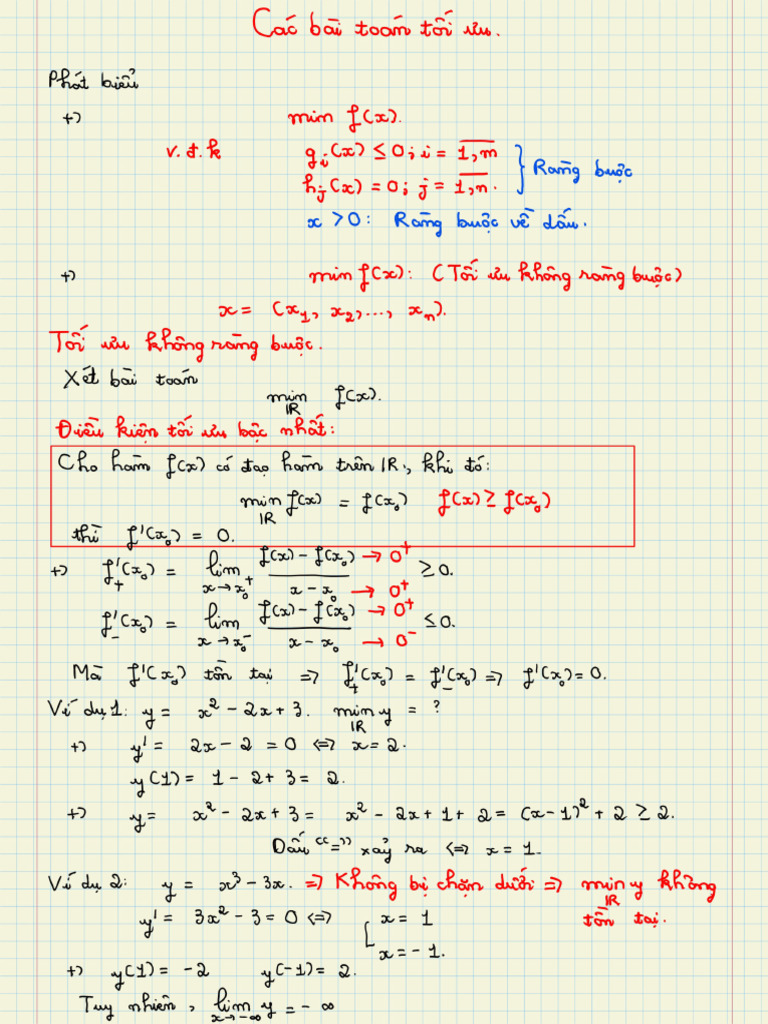 Các bài toán tối ưu.
Phát biểu
+) min f(x).
v.đ.k g_i(x) ≤ 0; i = \overline{1,m}
h_j(x) = 0; j = \overline{1,n}. } Ràng buộc
x > 0: Ràng buộc về dấu.
+) min f(x): (Tối ưu không ràng buộc)
x = (x_1, x_2, ..., x_n).
Tối ưu không ràng buộc.
Xét bài toán
min_{IR} f(x).
Điều kiện tối ưu bậc nhất:
Cho hàm f(x) có đạo hàm trên IR, khi đó:
min_{IR} f(x) = f(x_0) f(x) ≥ f(x_0)
thì f'(x_0) = 0.
+) f'_+(x_0) = lim_{x→x_0^+} \frac{f(x) - f(x_0) → 0^+}{x - x_0 → 0^+} ≥ 0.
f'_-(x_0) = lim_{x→x_0^-} \frac{f(x) - f(x_0) → 0^+}{x - x_0 → 0^-} ≤ 0.
Mà f'(x_0) tồn tại => f'_+(x_0) = f'_-(x_0) => f'(x_0) = 0.
Ví dụ 1: y = x^2 - 2x + 3. min_{IR} y = ?
+) y' = 2x - 2 = 0 <=> x = 2.
y(1) = 1 - 2 + 3 = 2.
+) y = x^2 - 2x + 3 = x^2 - 2x + 1 + 2 = (x - 1)^2 + 2 ≥ 2.
Dấu "=" xảy ra <=> x = 1.
Ví dụ 2: y = x^3 - 3x. => Không bị chặn dưới => min_{IR} y không
tồn tại.
y' = 3x^2 - 3 = 0 <=> [ x = 1
x = -1.
+) y(1) = -2 y(-1) = 2.
Tuy nhiên, lim_{x→-∞} y = -∞